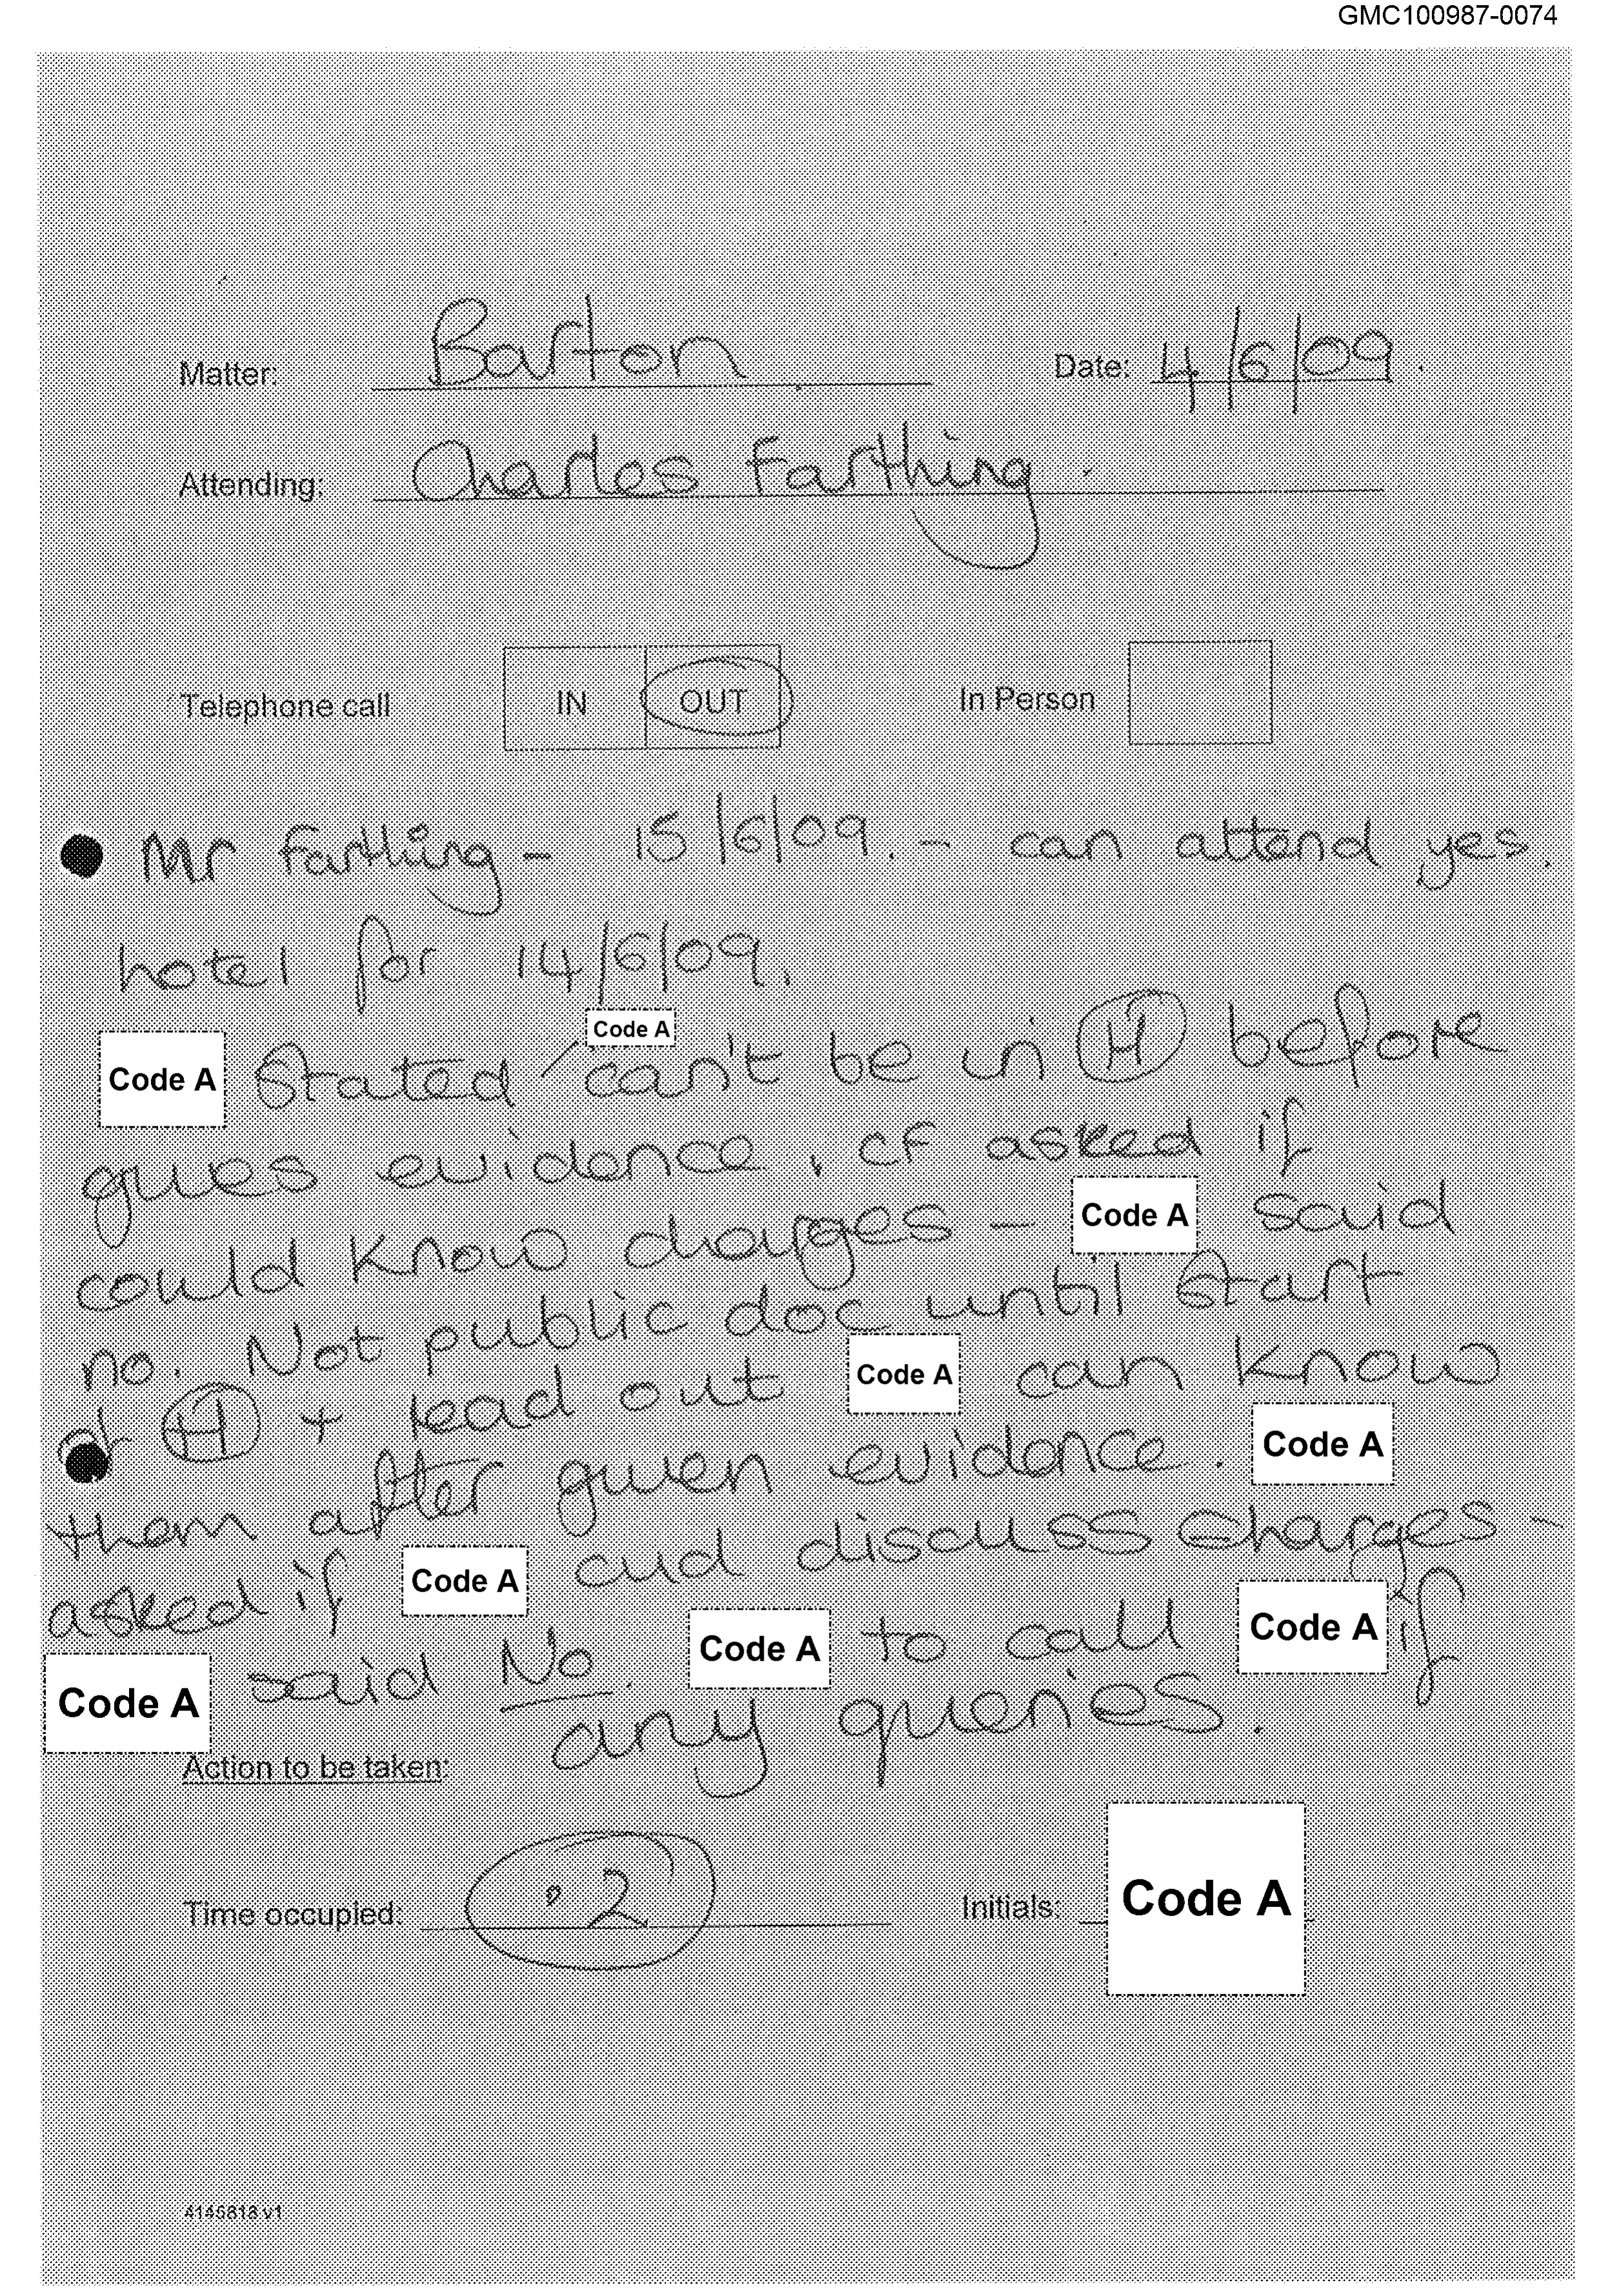 GMC100987-0074
Matter: Barton Date: 4/6/09.
Attending: Charles Farthing
Telephone call IN OUT In Person
Mr Farthing - 15/6/09. - can attend yes.
hotel for 14/6/09.
Code A
Code A stated can't be in (H) before
gives evidence. CF asked if
could know charges - Code A said
no. Not public doc until start
of (H) + read out Code A can know
them after given evidence. Code A
asked if Code A cud discuss charges -
Code A said No. Code A to call Code A if
any queries.
Action to be taken:
Time occupied: .2 Initials: Code A
4145818 v1